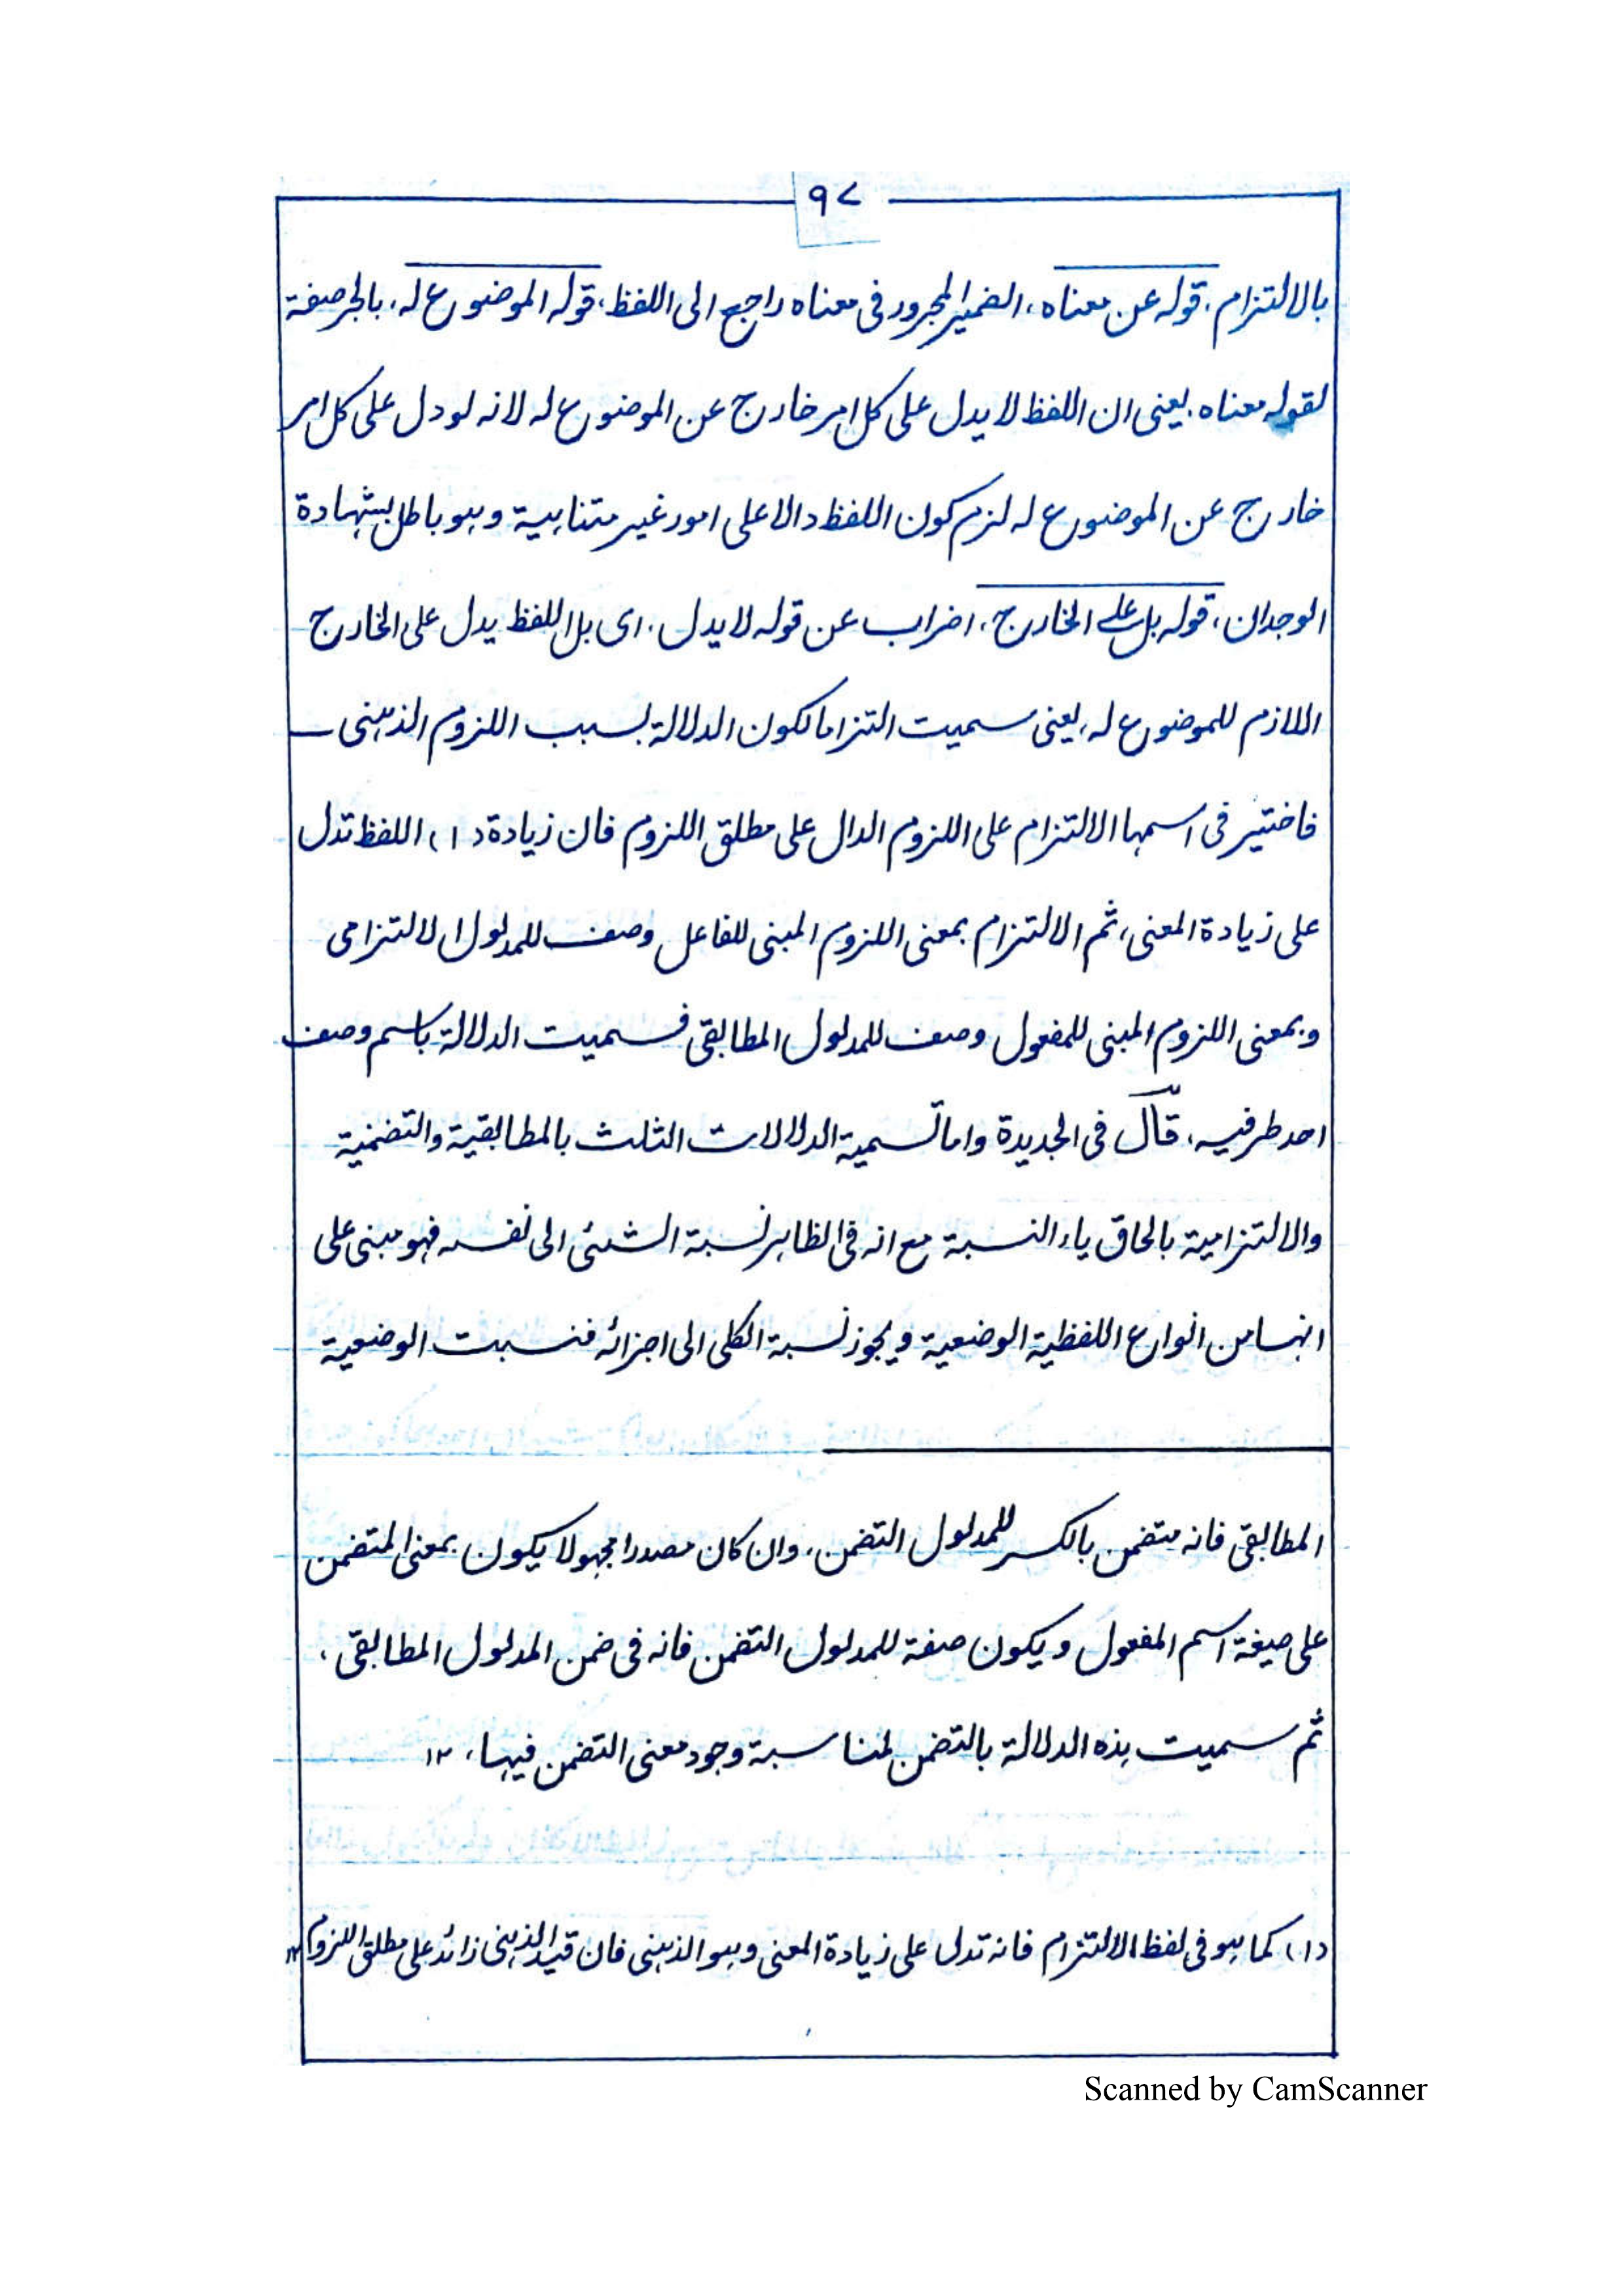 ٩٧
بالالتزام، قوله عن معناه، الضمير المجرور فى معناه راجع الى اللفظ، قوله الموضوع له، بالجر صفة
لقوله معناه. يعنى ان اللفظ لا يدل على كل امر خارج عن الموضوع له لانه لو دل على كل امر
خارج عن الموضوع له لزم كون اللفظ دالا على امور غير متناهية وهو باطل بشهادة
الوجدان، قوله بل على الخارج، اضراب عن قوله لا يدل. اى بل اللفظ يدل على الخارج
اللازم للموضوع له، يعنى سميت التزاما لكون الدلالة بسبب اللزوم الذهنى
فاختير فى اسمها الالتزام على اللزوم الدال على مطلق اللزوم فان زيادة (١) اللفظ تدل
على زيادة المعنى، ثم الالتزام بمعنى اللزوم المبنى للفاعل وصف للمدلول الالتزامى
وبمعنى اللزوم المبنى للمفعول وصف للمدلول المطابقى فسميت الدلالة باسم وصف
احد طرفيه، قال فى الجديدة واما تسمية الدلالات الثلث بالمطابقية والتضمنية
والالتزامية بالحاق ياء النسبة مع انه فى الظاهر نسبة الشئ الى نفسه فهو مبنى على
انها من انواع اللفظية الوضعية ويجوز نسبة الكلى الى اجزائه فنسبت الوضعية
المطابقى فانه متضمن بالكسر للمدلول التضمن، وان كان مصدرا مجهولا يكون بمعنى المتضمن
على صيغة اسم المفعول ويكون صفة للمدلول التضمن فانه فى ضمن المدلول المطابقى،
ثم سميت هذه الدلالة بالتضمن لمناسبة وجود معنى التضمن فيها، ١٢
(١) كما هو فى لفظ الالتزام فانه تدل على زيادة المعنى وهو الذهنى فان قيد الذهنى زائد على مطلق اللزوم ١٢
Scanned by CamScanner